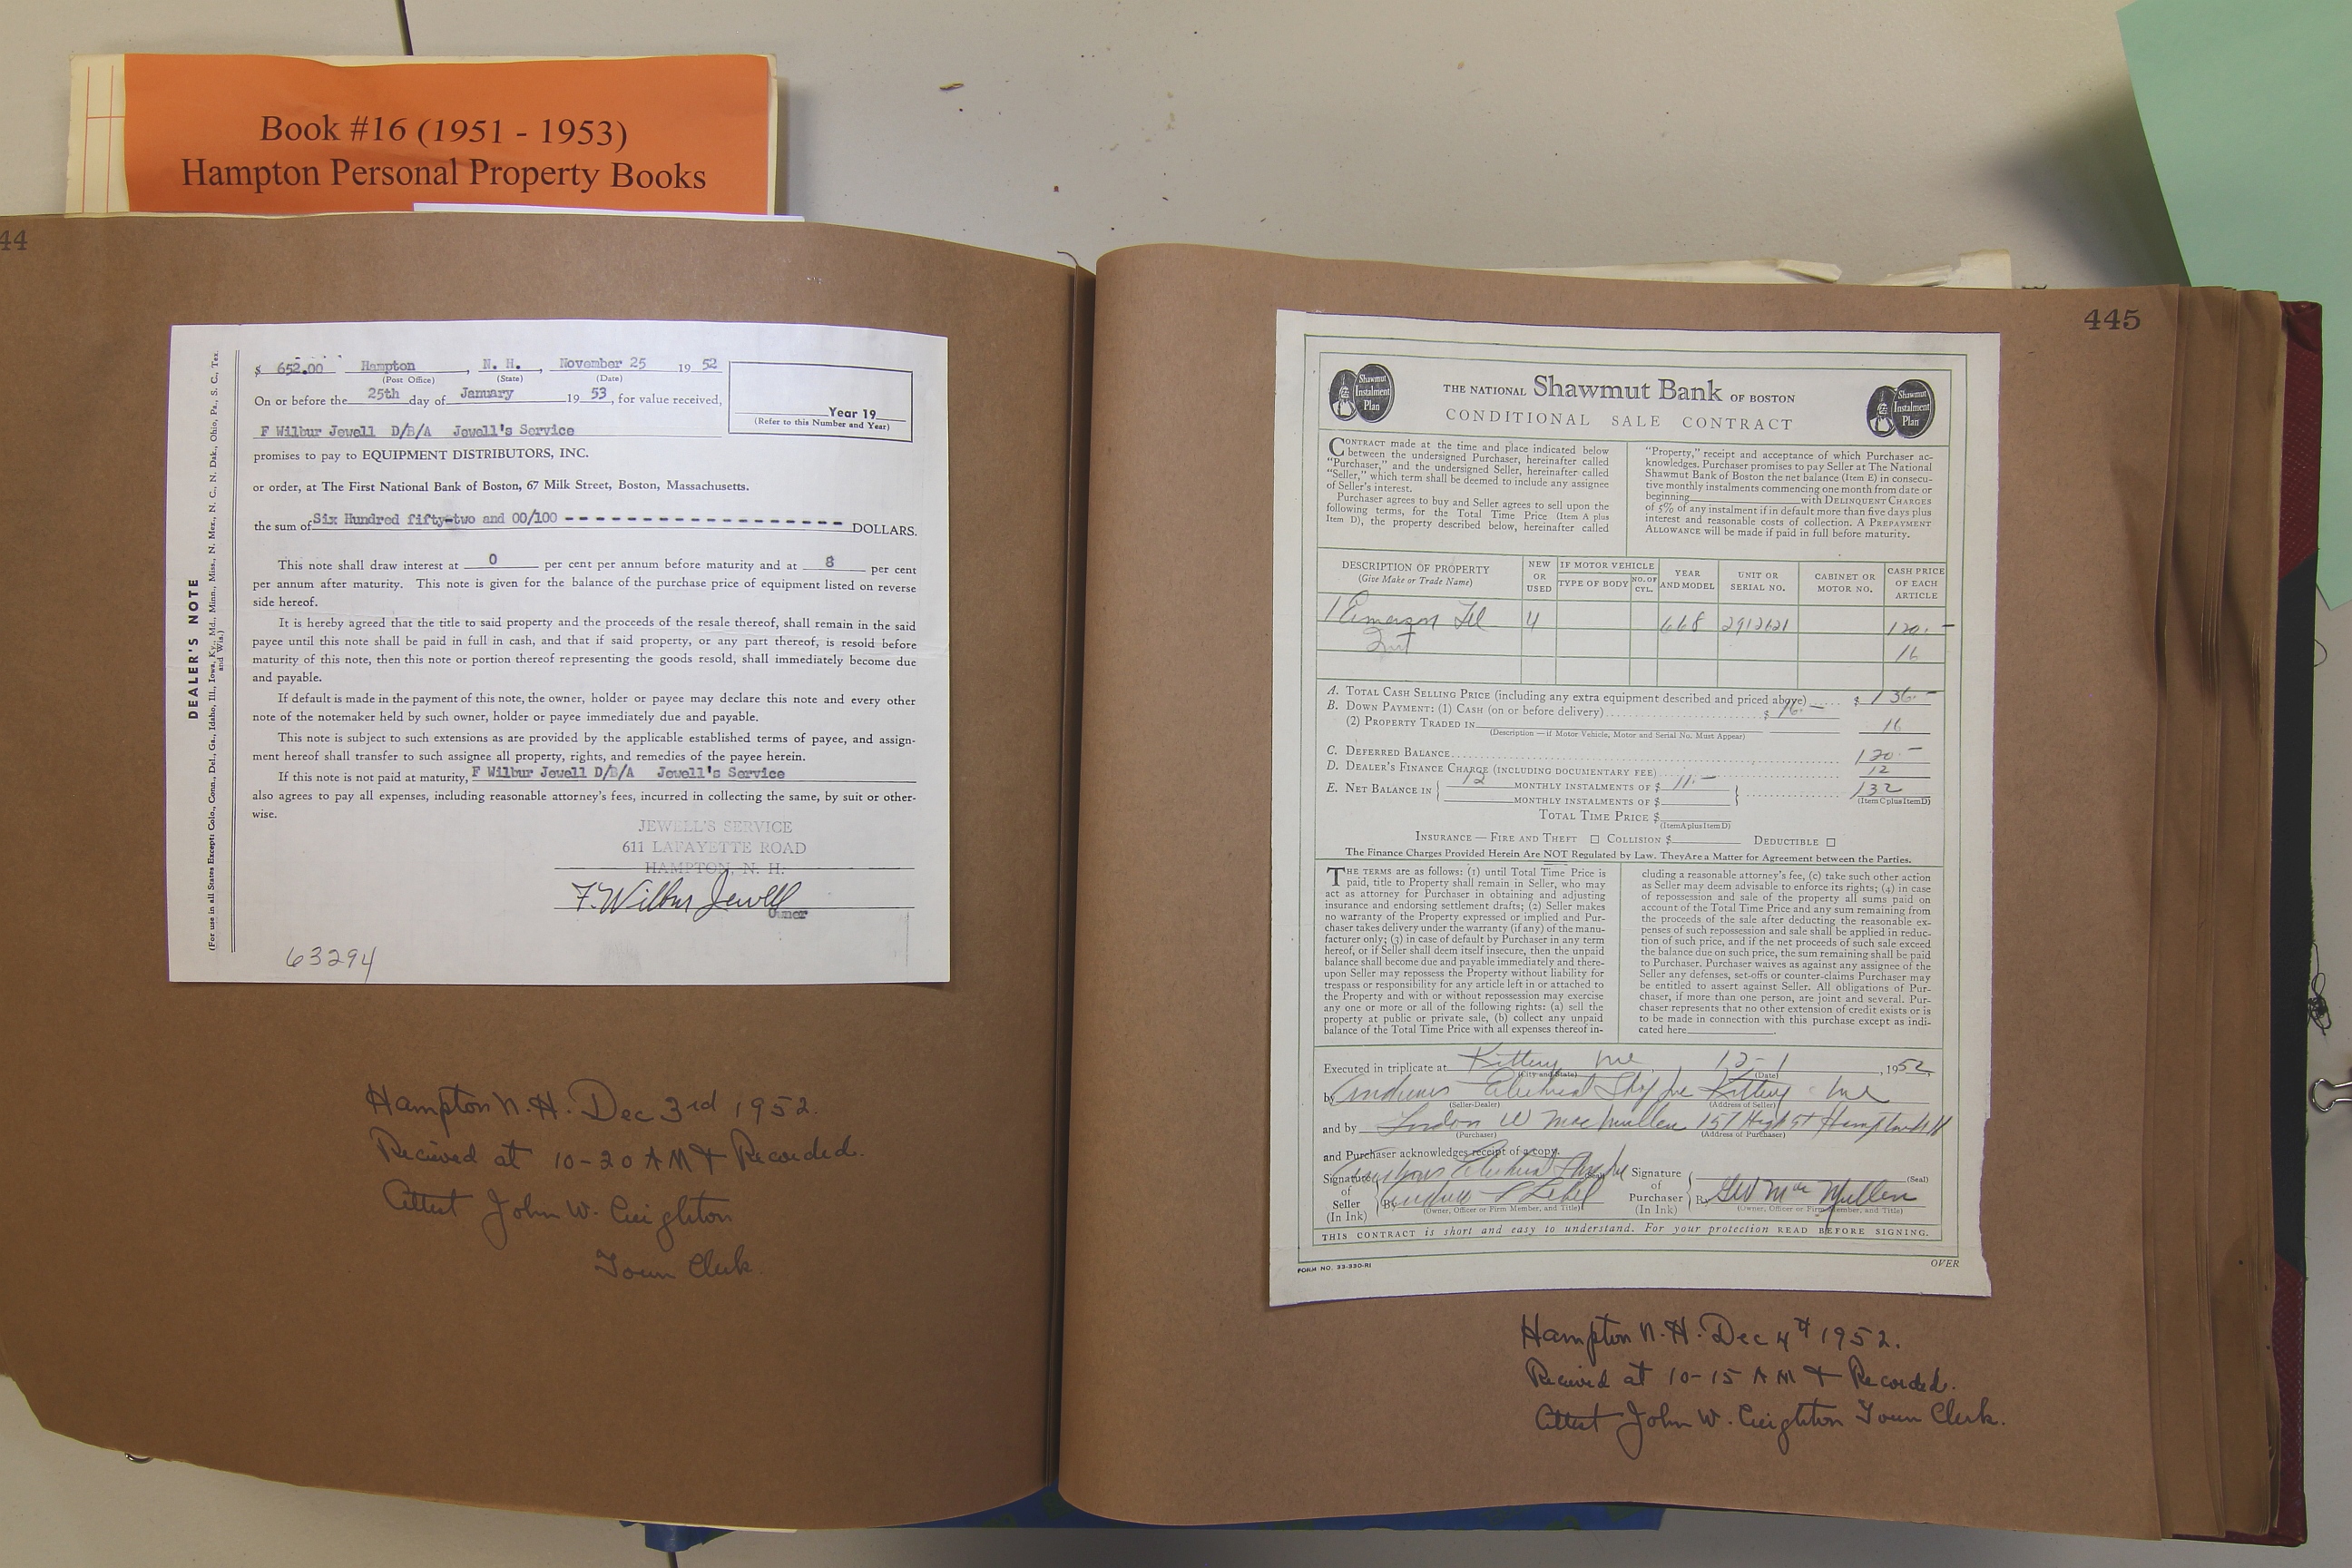 Book #16 (1951 - 1953)
Hampton Personal Property Books
44
DEALER'S NOTE
(For use in all States Except: Colo., Conn., Del., Ga., Idaho, Ill., Iowa, Ky., Md., Minn., Miss., N. Mex., N. C., N. Dak., Ohio, Pa., S. C., Tex. and Wis.)
$ 652.00 Hampton, N. H., November 25 19 52
(Post Office) (State) (Date)
On or before the 25th day of January 19 53, for value received,
Year 19
(Refer to this Number and Year)
F Wilbur Jewell D/B/A Jewell's Service
promises to pay to EQUIPMENT DISTRIBUTORS, INC.
or order, at The First National Bank of Boston, 67 Milk Street, Boston, Massachusetts.
the sum of Six Hundred fifty-two and 00/100 - - - - - - - - - - - - - - - - - - DOLLARS.
This note shall draw interest at 0 per cent per annum before maturity and at 8 per cent
per annum after maturity. This note is given for the balance of the purchase price of equipment listed on reverse
side hereof.
It is hereby agreed that the title to said property and the proceeds of the resale thereof, shall remain in the said
payee until this note shall be paid in full in cash, and that if said property, or any part thereof, is resold before
maturity of this note, then this note or portion thereof representing the goods resold, shall immediately become due
and payable.
If default is made in the payment of this note, the owner, holder or payee may declare this note and every other
note of the notemaker held by such owner, holder or payee immediately due and payable.
This note is subject to such extensions as are provided by the applicable established terms of payee, and assign-
ment hereof shall transfer to such assignee all property, rights, and remedies of the payee herein.
If this note is not paid at maturity, F Wilbur Jewell D/B/A Jewell's Service
also agrees to pay all expenses, including reasonable attorney's fees, incurred in collecting the same, by suit or other-
wise.
JEWELL'S SERVICE
611 LAFAYETTE ROAD
HAMPTON, N. H.
F. Wilbur Jewell
Owner
63294
Hampton N.H. Dec 3rd 1952.
Recieved at 10-20 AM & Recorded.
Attest John W. Creighton
Town Clerk.
445
Shawmut Instalment Plan
THE NATIONAL Shawmut Bank OF BOSTON
CONDITIONAL SALE CONTRACT
Shawmut Instalment Plan
CONTRACT made at the time and place indicated below
between the undersigned Purchaser, hereinafter called
"Purchaser," and the undersigned Seller, hereinafter called
"Seller," which term shall be deemed to include any assignee
of Seller's interest.
Purchaser agrees to buy and Seller agrees to sell upon the
following terms, for the Total Time Price (Item A plus
Item D), the property described below, hereinafter called
"Property," receipt and acceptance of which Purchaser ac-
knowledges. Purchaser promises to pay Seller at The National
Shawmut Bank of Boston the net balance (Item E) in consecu-
tive monthly instalments commencing one month from date or
beginning with DELINQUENT CHARGES
of 5% of any instalment if in default more than five days plus
interest and reasonable costs of collection. A PREPAYMENT
ALLOWANCE will be made if paid in full before maturity.
DESCRIPTION OF PROPERTY (Give Make or Trade Name) NEW OR USED IF MOTOR VEHICLE TYPE OF BODY NO. OF CYL. YEAR AND MODEL UNIT OR SERIAL NO. CABINET OR MOTOR NO. CASH PRICE OF EACH ARTICLE
1 Emerson Tel 4 668 2912621 120.-
16
A. TOTAL CASH SELLING PRICE (including any extra equipment described and priced above) $ 136.-
B. DOWN PAYMENT: (1) CASH (on or before delivery) $ 16.-
(2) PROPERTY TRADED IN 16
(Description — if Motor Vehicle, Motor and Serial No. Must Appear)
C. DEFERRED BALANCE 120.-
D. DEALER'S FINANCE CHARGE (INCLUDING DOCUMENTARY FEE) 12
E. NET BALANCE IN { 12 MONTHLY INSTALMENTS OF $ 11.- } 132
MONTHLY INSTALMENTS OF $ (Item C plus Item D)
TOTAL TIME PRICE $
(Item A plus Item D)
INSURANCE — FIRE AND THEFT ☐ COLLISION $ DEDUCTIBLE ☐
The Finance Charges Provided Herein Are NOT Regulated by Law. They Are a Matter for Agreement between the Parties.
THE TERMS ARE AS FOLLOWS: (1) until Total Time Price is
paid, title to Property shall remain in Seller, who may
act as attorney for Purchaser in obtaining and adjusting
insurance and endorsing settlement drafts; (2) Seller makes
no warranty of the Property expressed or implied and Pur-
chaser takes delivery under the warranty (if any) of the manu-
facturer only; (3) in case of default by Purchaser in any term
hereof, or if Seller shall deem itself insecure, then the unpaid
balance shall become due and payable immediately and there-
upon Seller may repossess the Property without liability for
trespass or responsibility for any article left in or attached to
the Property and with or without repossession may exercise
any one or more or all of the following rights: (a) sell the
property at public or private sale, (b) collect any unpaid
balance of the Total Time Price with all expenses thereof in-
cluding a reasonable attorney's fee, (c) take such other action
as Seller may deem advisable to enforce its rights; (4) in case
of repossession and sale of the property all sums paid on
account of the Total Time Price and any sum remaining from
the proceeds of the sale after deducting the reasonable ex-
penses of such repossession and sale shall be applied in reduc-
tion of such price, and if the net proceeds of such sale exceed
the balance due on such price, the sum remaining shall be paid
to Purchaser. Purchaser waives as against any assignee of the
Seller any defenses, set-offs or counter-claims Purchaser may
be entitled to assert against Seller. All obligations of Pur-
chaser, if more than one person, are joint and several. Pur-
chaser represents that no other extension of credit exists or is
to be made in connection with this purchase except as indi-
cated here
Executed in triplicate at Kittery Me, 12-1, 1952
(City and State) (Date)
by Andrews Electrical Shop Inc Kittery Me
(Seller-Dealer) (Address of Seller)
and by Gordon W MacMullen 157 High St Hampton N H
(Purchaser) (Address of Purchaser)
and Purchaser acknowledges receipt of a copy.
Signature of Seller (In Ink) Andrews Electrical Shop Inc (Seal)
By (Owner, Officer or Firm Member, and Title)
Signature of Purchaser (In Ink) (Seal)
By GW MacMullen
(Owner, Officer or Firm Member, and Title)
THIS CONTRACT is short and easy to understand. For your protection READ BEFORE SIGNING.
FORM NO. 33-330-R1 OVER
Hampton N.H. Dec 4th 1952.
Recieved at 10-15 AM & Recorded.
Attest John W. Creighton Town Clerk.